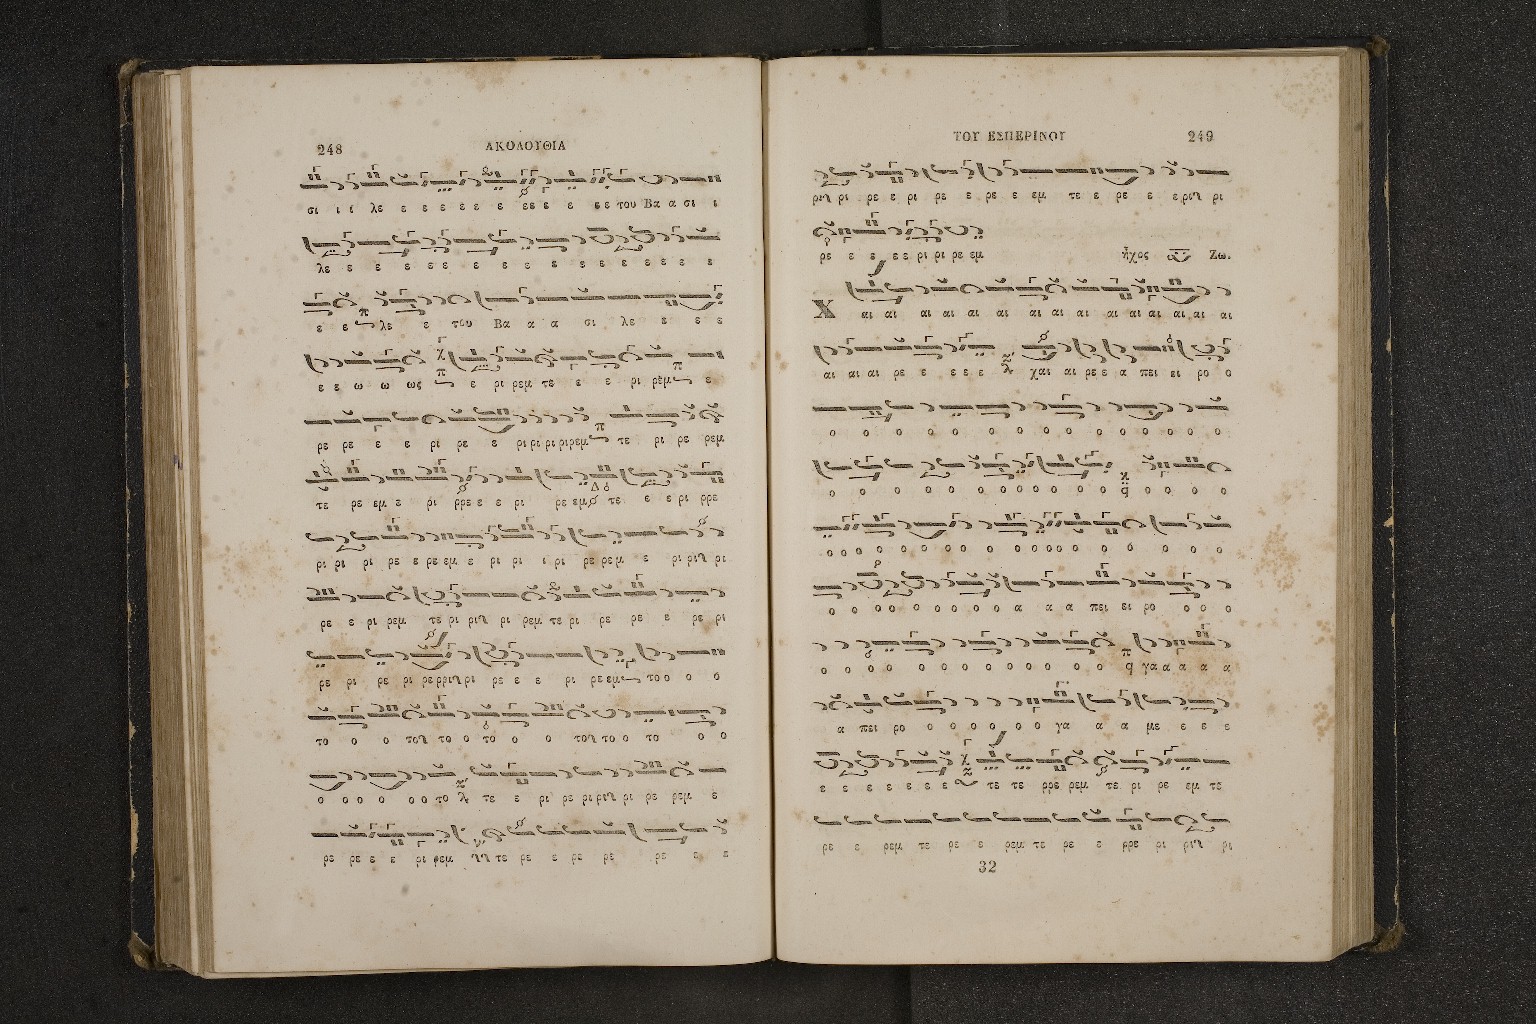 248
ΑΚΟΛΟΥΘΙΑ
σι ι ι λε ε ε ε ε ε ε εε ε ε ε ε του Βα α σι ι
λε ε ε ε ε ε ε ε ε ε ε ε ε ε ε
ε ε λε ε του Βα α α σι λε ε ε ε
ε ε ω ω ως ε ρι ρεμ τε ε ε ρι ρεμ ε
ρε ρε ε ε ρι ρε ε ρι ρι ρι ριρεμ τε ρι ρε ρεμ
τε ρε εμ ε ρι ρρε ε ε ρι ρε εμ τε ε ε ρι ρρε
ρι ρι ρι ρε ε ρε εμ ε ρι ρι ι ρι ρε ρεμ ε ρι ρι ρι
ρε ε ρι ρεμ τε ρι ρι ρι ρεμ τε ρι ρε ρε ε ρε ρι
ρε ρι ρε ρι ρε ρρι ρι ρε ε ε ρι ρε εμ το ο ο ο
το ο ο το το ο το ο ο το το ο το ο ο
ο ο ο ο ο ο το τε ε ρι ρε ρι ρι ρι ρε ρεμ ε
ρε ρε ε ε ρι ρεμ τε ρε ε ρε ρε ρε ε ε
ΤΟΥ ΕΣΠΕΡΙΝΟΥ
249
ρι ρι ρε ε ρι ρε ε ρε ε εμ τε ε ρε ε ε ρι ρι
ρε ε ε ε ε ρι ρι ρε εμ ἦχος Ζω.
Χ αι αι αι αι αι αι αι αι αι αι αι αι αι αι αι
αι αι αι ρε ε ε ε ε χαι αι ρε ε α πει ει ρο ο
ο ο ο ο ο ο ο ο ο ο ο ο ο ο
ο ο ο ο ο ο ο ο ο ο ο q ο ο ο ο
ο ο ο ο ο ο ο ο ο ο ο ο ο ο ο ο ο ο ο
ο ο ο ο ο ο ο ο ο α α α πει ει ρο ο ο ο
ο ο ο ο ο ο ο ο ο ο ο ο q γα α α α α
α πει ρο ο ο ο ο ο ο γα α α με ε ε ε
ε ε ε ε ε ε ε τε τε ρρε ρεμ τε ρι ρε εμ τε
ρε ε ρεμ τε ρε ε ρεμ τε ρε ε ρρε ρι ρι ρι
32